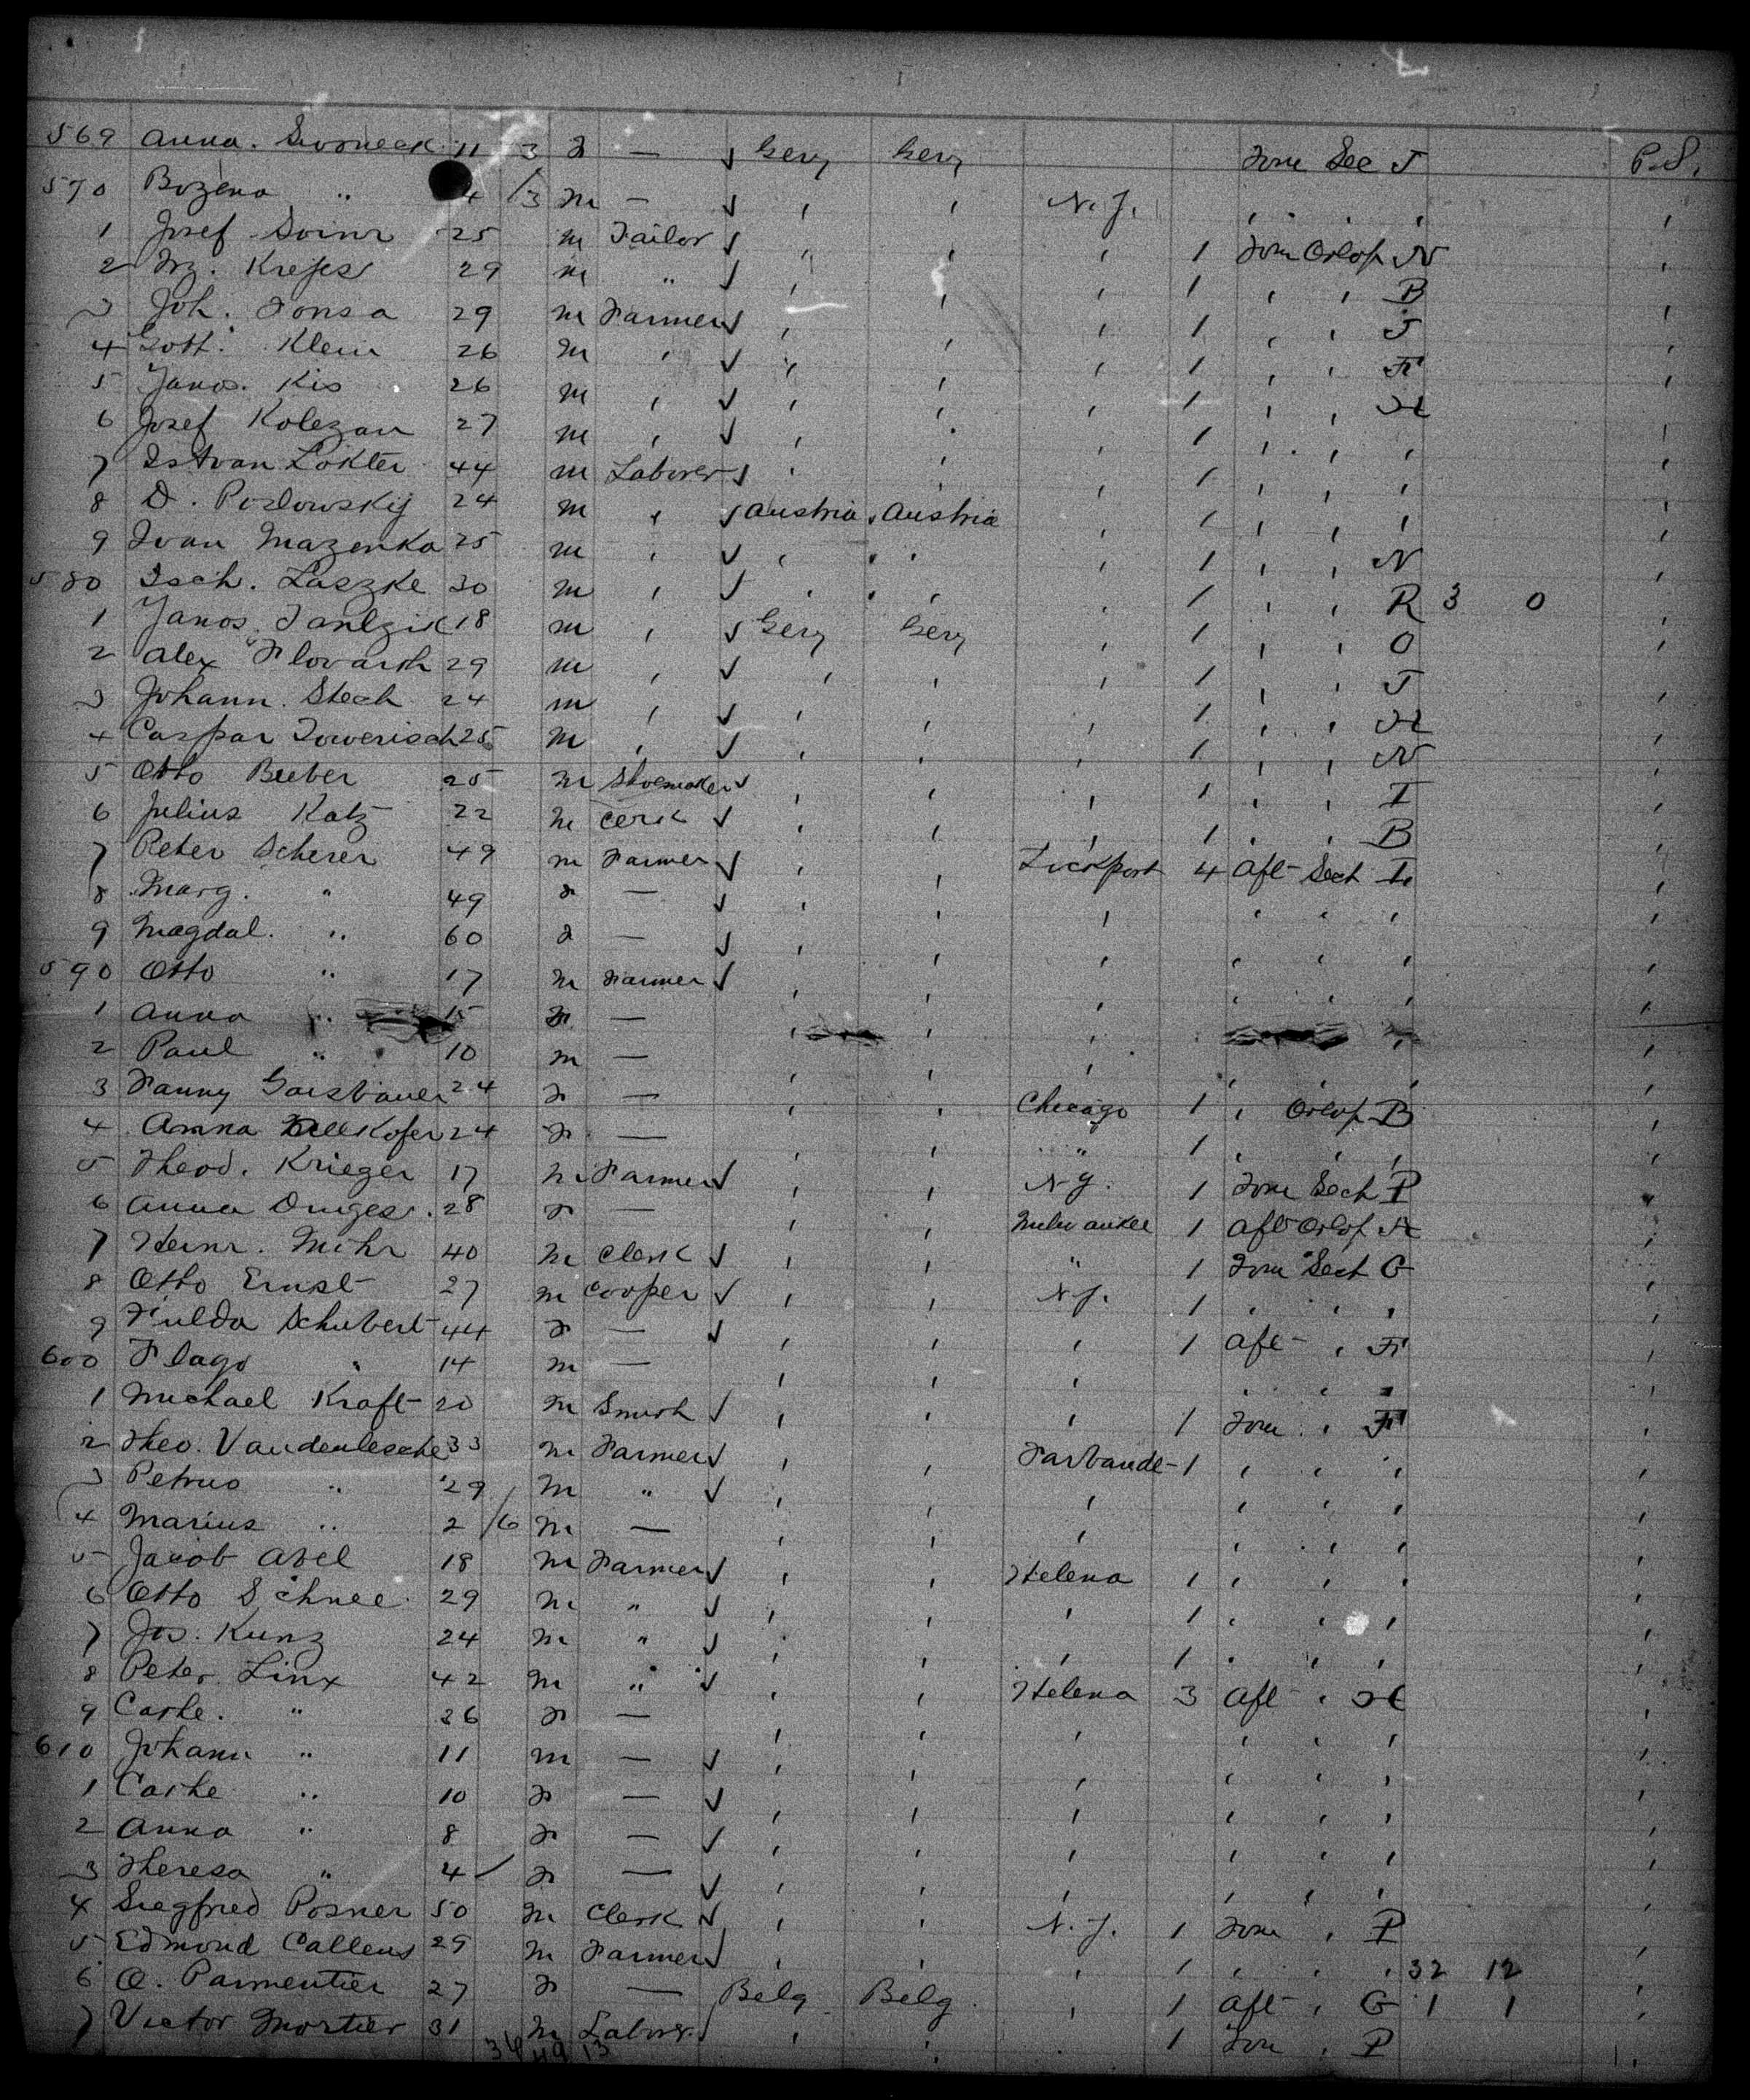 569 Anna. Swoneck 11 3 F — ✓ Gery Gery Forw Sec J P.S.
570 Bozena " 4 /3 m — ✓ , , N.Y. , . , ,
1 Josef 25 m Tailor ✓ , , , 1 Forw Orlop N ,
2 29 m " ✓ , , , 1 , , B ,
3 Joh. Fonsa 29 m Farmer ✓ , , , 1 , , J ,
4 Gott. Klein 26 m , ✓ , , , 1 , , F ,
5 Janos. Kis 26 m , ✓ , , , 1 , , H ,
6 Josef Kolezan 27 m , ✓ , , , 1 , , , ,
7 Istvan Lokter 44 m Laborer ✓ , , , 1 , , , ,
8 D. Poslowskij 24 m , ✓ Austria , Austria , 1 , , , ,
9 Ivan Mazenka 25 m , ✓ , , , 1 , , N ,
580 Isch. Laszke 30 m , ✓ , , , 1 , , R 3 0 ,
1 Janos 18 m , ✓ Gery Gery , 1 , , O ,
2 Alex 29 m , ✓ , , , 1 , , J ,
3 Johann. Stech 24 m , ✓ , , , 1 , , H ,
4 Caspar Towerisch 25 m , ✓ , , , 1 , , N ,
5 Otto Bieber 25 m Shoemaker ✓ , , , 1 , , I ,
6 Julius Katz 22 m Cerk ✓ , , , 1 , , B ,
7 Peter Scherer 49 m Farmer ✓ , , Lockport 4 Aft Sect I ,
8 Marg. " 49 F — ✓ , , , , , , ,
9 Magdal. " 60 F — ✓ , , , , , , ,
590 Otto " 17 m Farmer ✓ , , , , , , ,
1 Anna " 15 F — , , , , ,
2 Paul " 10 m — , , , , , , ,
3 Fanny Gaisbauer 24 F — , , Chicago 1 , Orlop B ,
4 Anna 24 F — , , " 1 , , , ,
5 Theod. Krieger 17 m Farmer ✓ , , N.Y. 1 Forw Sect P ,
6 Anna 28 F — , , Milwaukee 1 Aft Orlop H ,
7 Heinr. Mihr 40 m Clerk ✓ , , " 1 Forw Sect G ,
8 Otto Ernst 27 m Cooper ✓ , , N.Y. 1 , , , ,
9 Hulda Schubert 44 F — ✓ , , , 1 Aft , F ,
600 Hugo " 14 m — , , , , , , ,
1 Michael Kraft 20 m Smith ✓ , , , 1 Forw , F ,
2 Theo. Vandenlesche 33 m Farmer ✓ , , 1 , , , ,
3 Petrus " 29 m " ✓ , , , , , , ,
4 Marius " 2 /6 m — , , , , , , ,
5 Jacob Abel 18 m Farmer ✓ , , Helena 1 , , , ,
6 Otto Schnee 29 m " ✓ , , , 1 , , , ,
7 Jos. Kunz 24 m " ✓ , , , 1 , , , ,
8 Peter Linx 42 m " ✓ , , Helena 3 Aft , H ,
9 Cathe. " 26 F — , , , , , , ,
610 Johann " 11 m — ✓ , , , , , , ,
1 Cathe " 10 F — ✓ , , , , , , ,
2 Anna " 8 F — ✓ , , , , , , ,
3 Theresa " 4 / F — ✓ , , , , , , ,
4 Siegfried Posner 50 m Clerk ✓ , , N.Y. 1 Forw , P ,
5 Edmond Callens 29 m Farmer ✓ , , , 1 , , , 32 12 ,
6 O. Parmentier 27 F — Belg. Belg. , 1 Aft , G 1 1 ,
7 Victor Mortier 31 m Labor. ✓ , , . 1 Forw , P ,
36 49 13